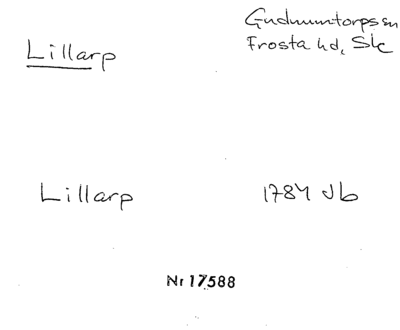 Lillarp
Gudmuntorps sn
Frosta hd, Sk
Lillarp
1784 Jb
Nr 17588